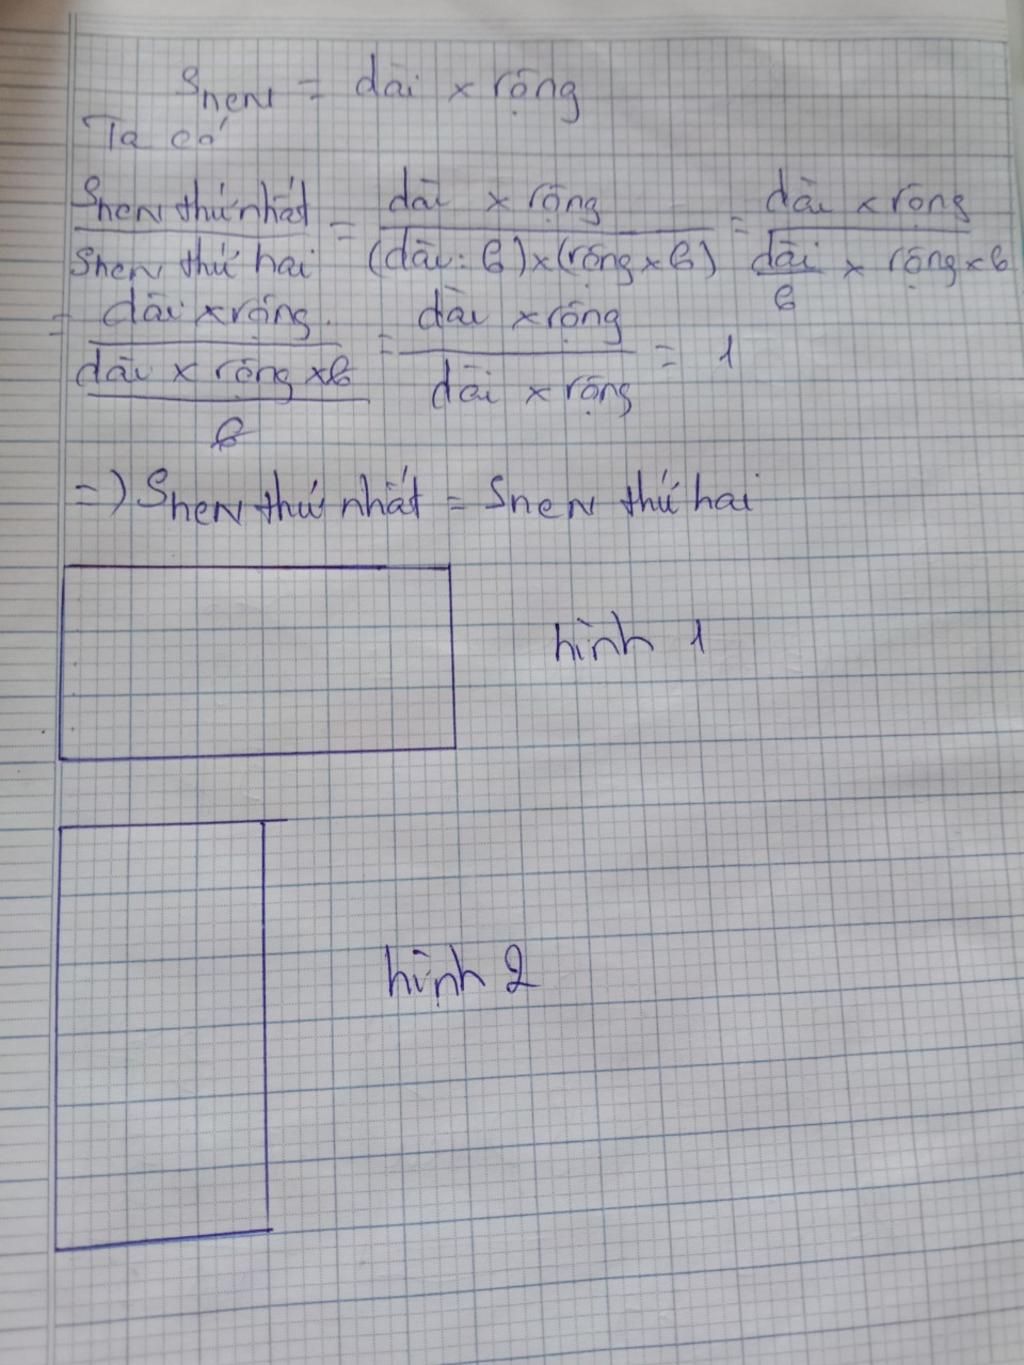 S_HCN = dài x rộng
Ta có
S_HCN thứ nhất / S_HCN thứ hai = dài x rộng / (dài : 6) x (rộng x 6) = dài x rộng / dài/6 x rộng x 6
= dài x rộng / dài x rộng x 6 / 6 = dài x rộng / dài x rộng = 1
=) S_HCN thứ nhất = S_HCN thứ hai
hình 1
hình 2